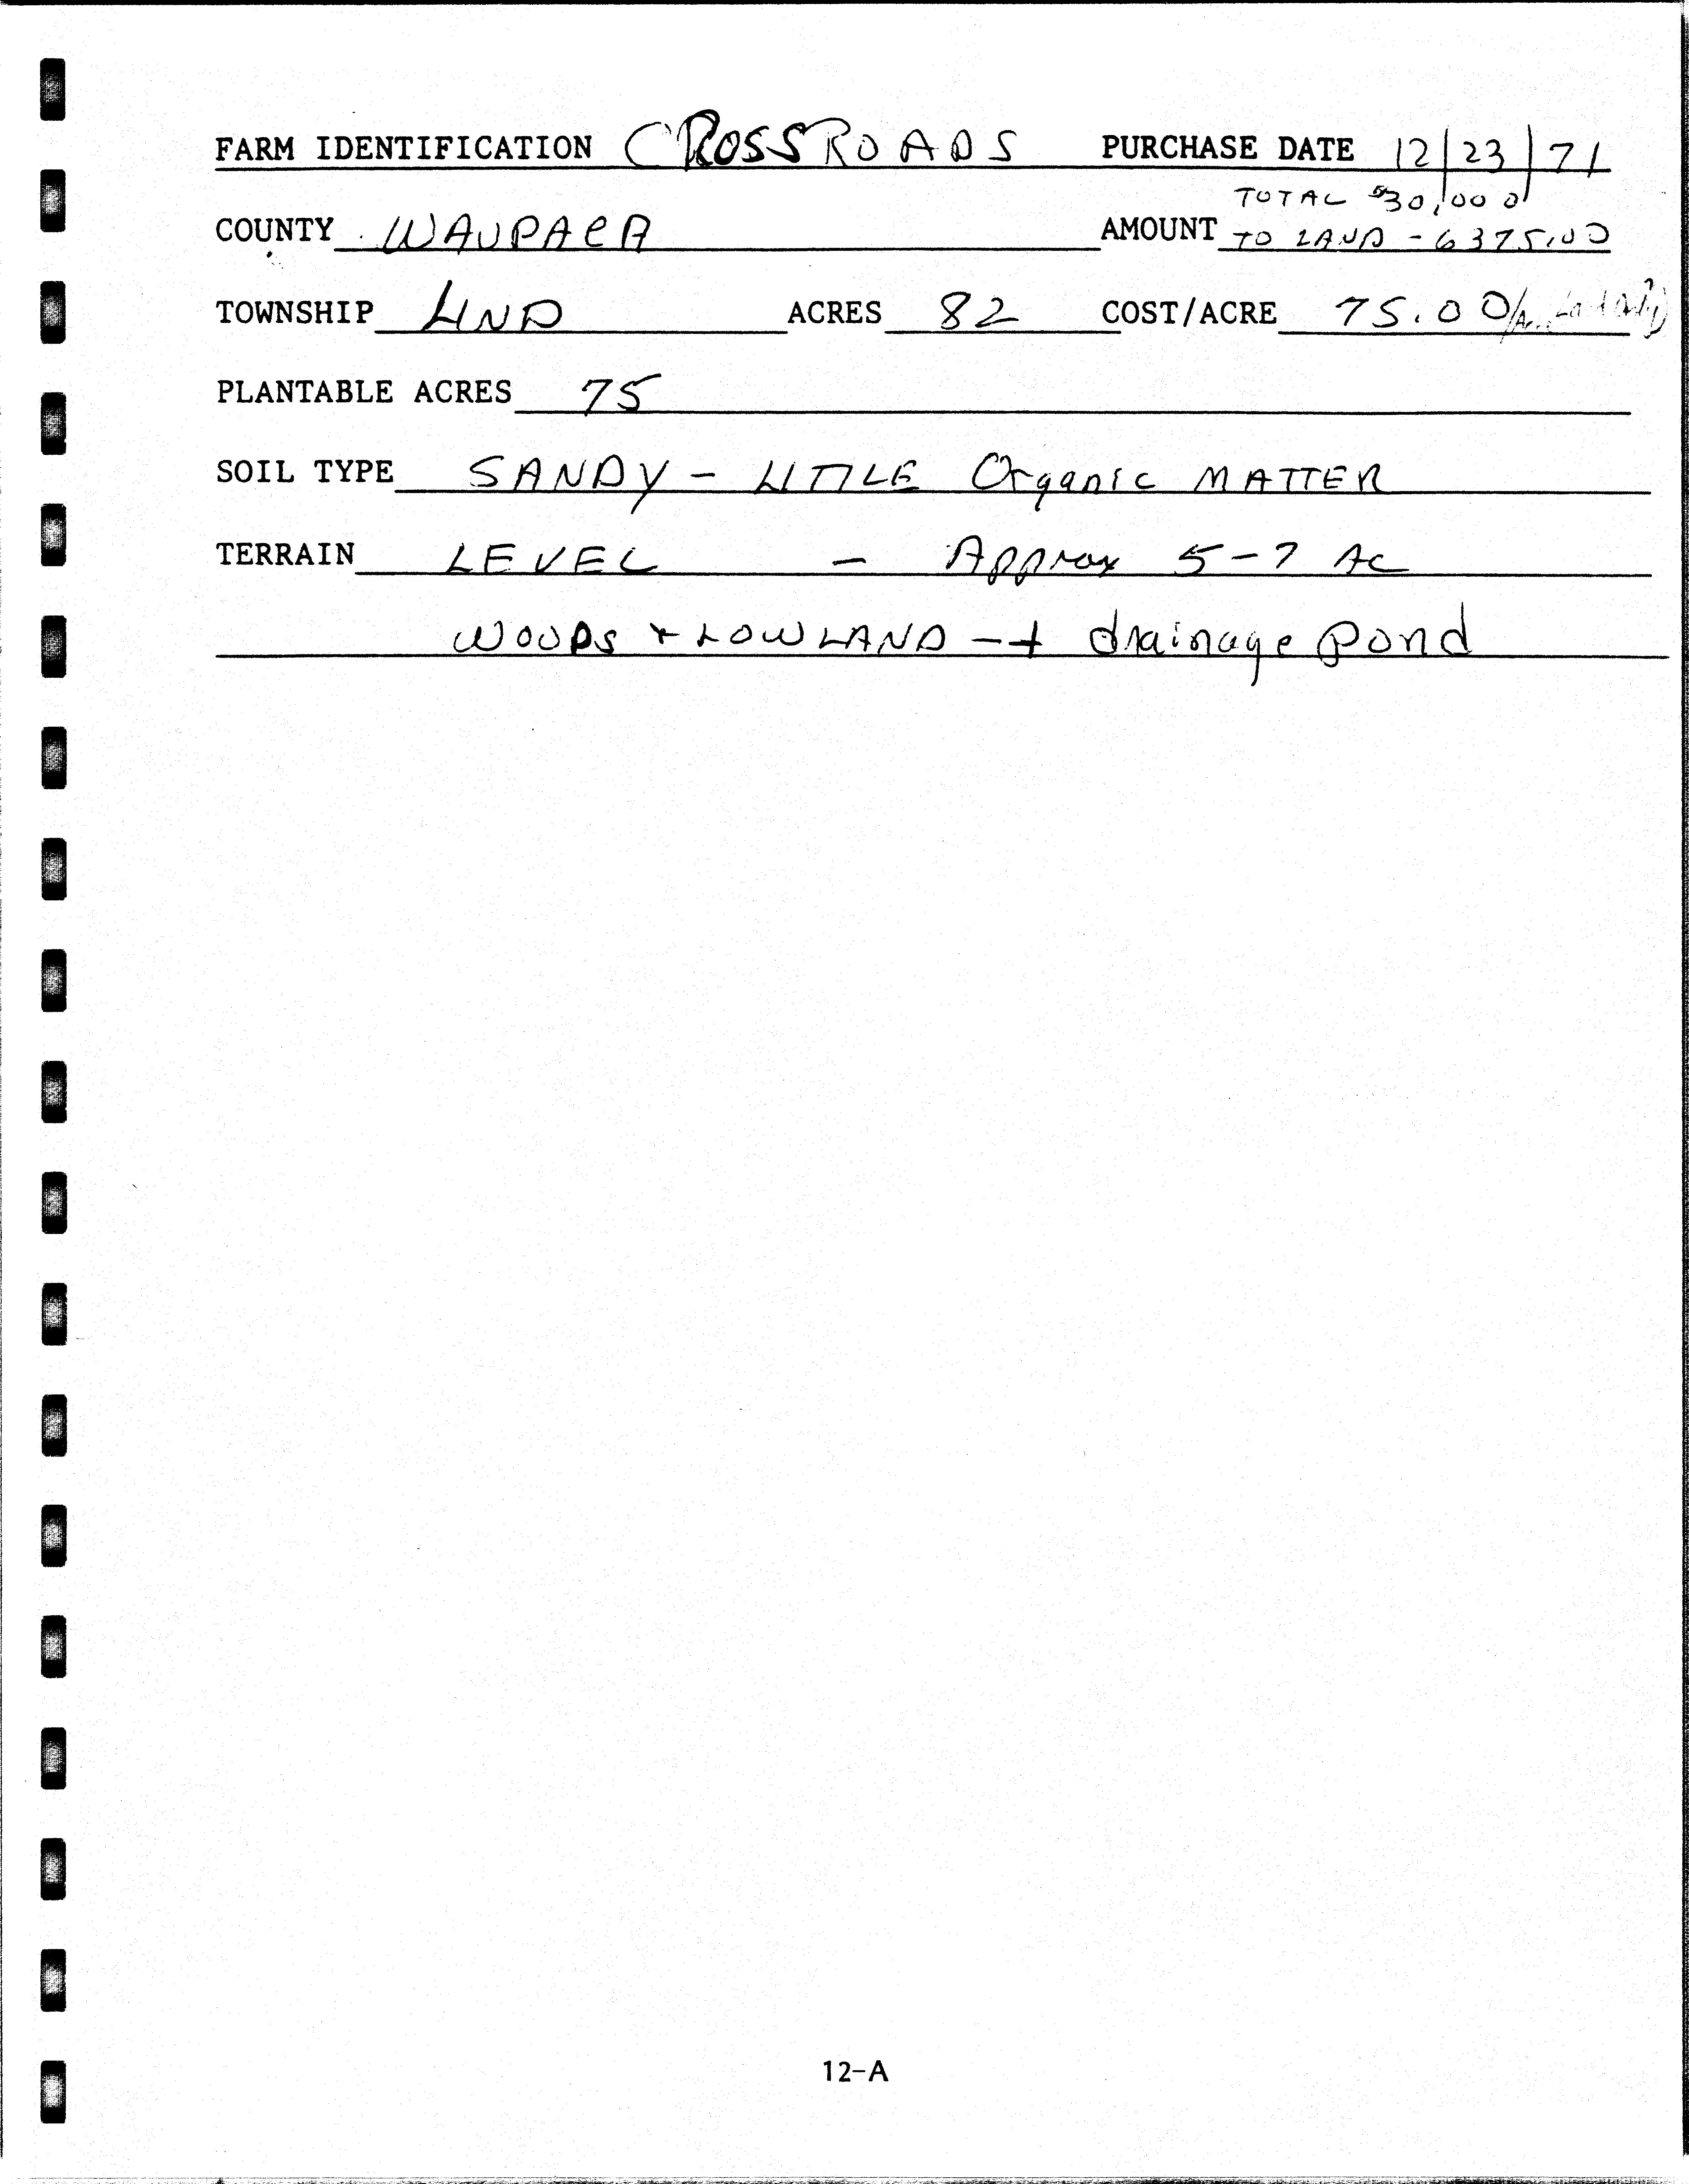 FARM IDENTIFICATION CROSSROADS PURCHASE DATE 12/23/71
TOTAL $30,000
COUNTY WAUPACA AMOUNT TO LAND - 6375.00
TOWNSHIP LIND ACRES 82 COST/ACRE 75.00/Ac. Land Only)
PLANTABLE ACRES 75
SOIL TYPE SANDY - LITTLE Organic MATTER
TERRAIN LEVEL - Approx 5-7 Ac
WOODS + LOWLAND - + drainage pond
12-A